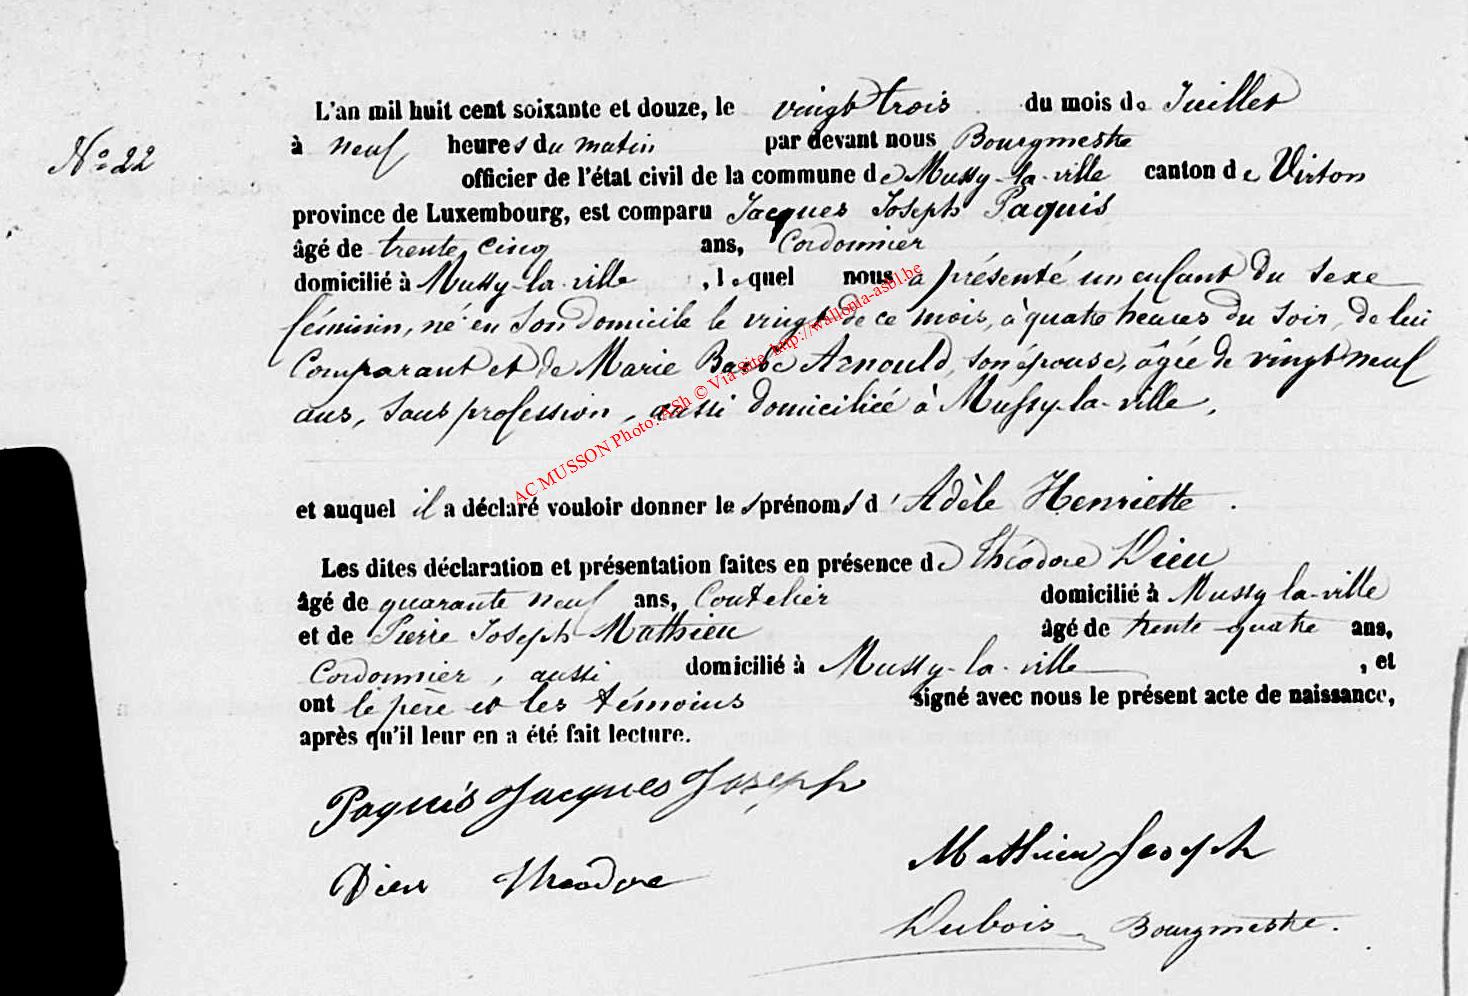 L'an mil huit cent soixante et douze, le vingt trois du mois de Juillet
à neuf heures du matin par devant nous Bourgmestre
N° 22
officier de l'état civil de la commune de Mussy-la-ville canton de Virton
province de Luxembourg, est comparu Jacques Joseph Paquis
âgé de trente cinq ans, Cordonnier
domicilié à Mussy-la-ville, lequel nous a présenté un enfant du sexe
féminin, né en son domicile le vingt de ce mois, à quatre heures du soir, de lui
Comparant et de Marie Barbe Arnould, son épouse, âgée de vingt neuf
ans, sans profession, aussi domiciliée à Mussy-la-ville,
AC MUSSON Photo: ASh © Via Site http://wallonia-asbl.be
et auquel il a déclaré vouloir donner les prénoms d'Adèle Henriette.
Les dites déclaration et présentation faites en présence de Théodore Dieu
âgé de quarante neuf ans, Coutelier domicilié à Mussy la-ville
et de Pierre Joseph Mathieu âgé de trente-quatre ans,
Cordonnier, aussi domicilié à Mussy-la-ville, et
ont le père et les témoins signé avec nous le présent acte de naissance,
après qu'il leur en a été fait lecture.
Paquis Jacques Joseph
Mathieu Joseph
Dieu Théodore
Dubois Bourgmestre.